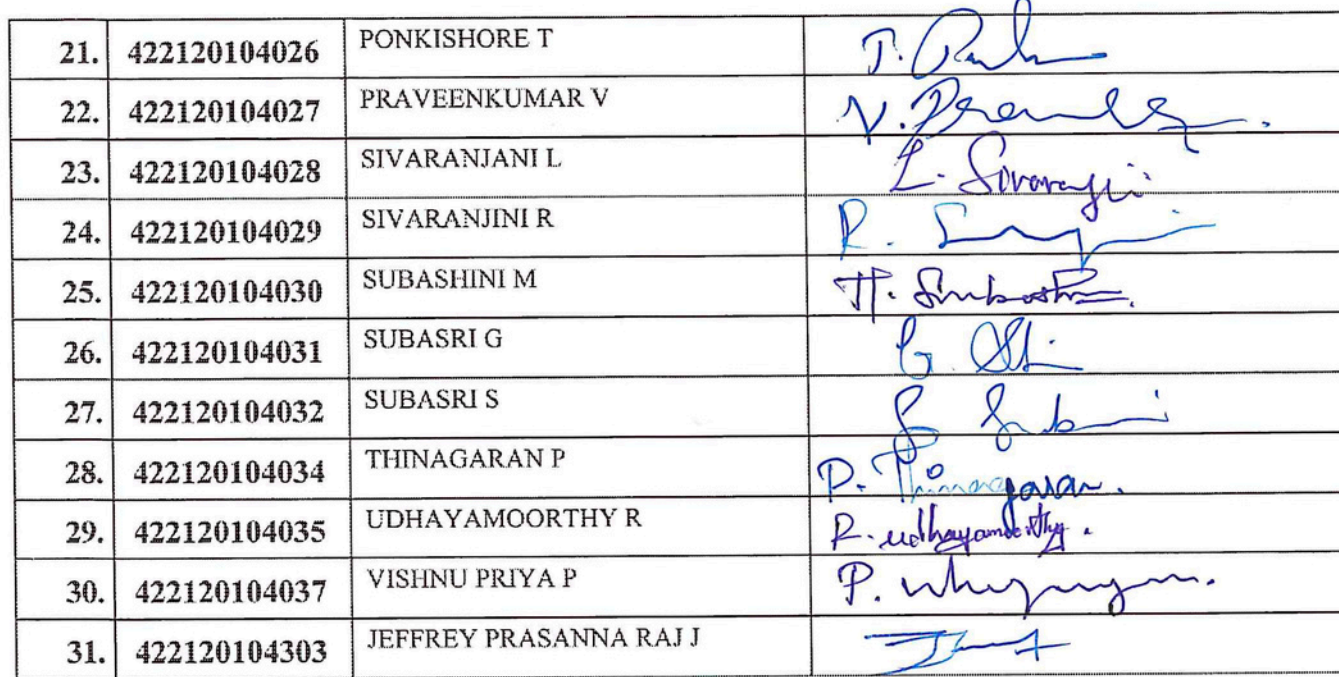 21. 422120104026 PONKISHORE T T.
22. 422120104027 PRAVEENKUMAR V V.
23. 422120104028 SIVARANJANI L L.
24. 422120104029 SIVARANJINI R R.
25. 422120104030 SUBASHINI M
26. 422120104031 SUBASRI G G
27. 422120104032 SUBASRI S S
28. 422120104034 THINAGARAN P P. Thinnagaran.
29. 422120104035 UDHAYAMOORTHY R R. udhayamoorthy.
30. 422120104037 VISHNU PRIYA P P.
31. 422120104303 JEFFREY PRASANNA RAJ J